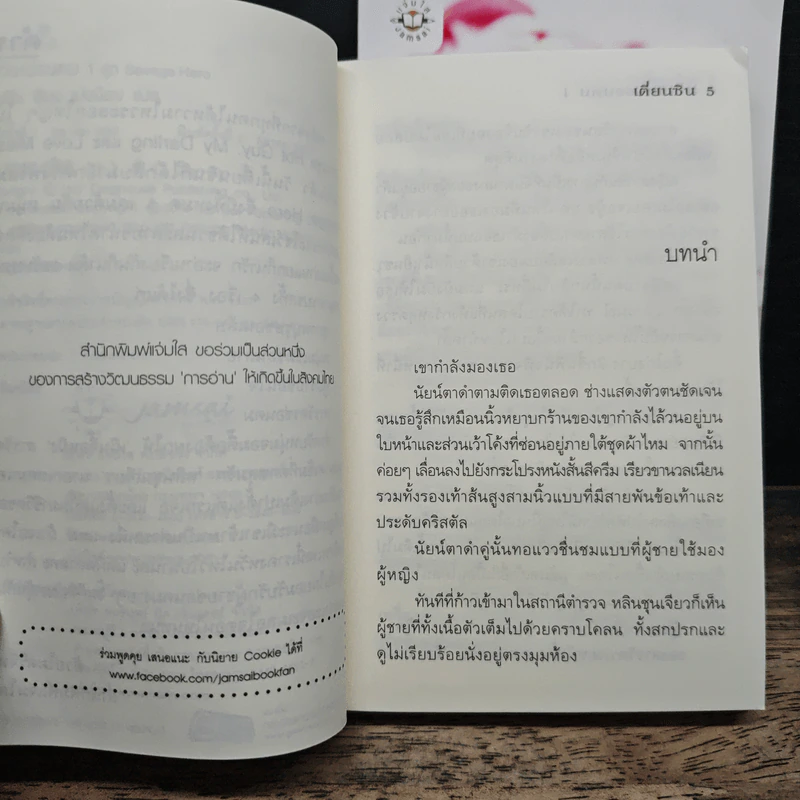 สำนักพิมพ์แจ่มใส ขอร่วมเป็นส่วนหนึ่ง
ของการสร้างวัฒนธรรม 'การอ่าน' ให้เกิดขึ้นในสังคมไทย
ร่วมพูดคุย เสนอแนะ กับนิยาย Cookie ได้ที่
www.facebook.com/jamsaibookfan
เตี่ยนซิน 5
บทนำ
เขากำลังมองเธอ
นัยน์ตาดำตามติดเธอตลอด ช่างแสดงตัวตนชัดเจน
จนเธอรู้สึกเหมือนนิ้วหยาบกร้านของเขากำลังไล้วนอยู่บน
ใบหน้าและส่วนเว้าโค้งที่ซ่อนอยู่ภายใต้ชุดผ้าไหม จากนั้น
ค่อยๆ เลื่อนลงไปยังกระโปรงหนังสั้นสีครีม เรียวขานวลเนียน
รวมทั้งรองเท้าส้นสูงสามนิ้วแบบที่มีสายพันข้อเท้าและ
ประดับคริสตัล
นัยน์ตาดำคู่นั้นทอแววชื่นชมแบบที่ผู้ชายใช้มอง
ผู้หญิง
ทันทีที่ก้าวเข้ามาในสถานีตำรวจ หลินชุนเจียวก็เห็น
ผู้ชายที่ทั้งเนื้อตัวเต็มไปด้วยคราบโคลน ทั้งสกปรกและ
ดูไม่เรียบร้อยนั่งอยู่ตรงมุมห้อง